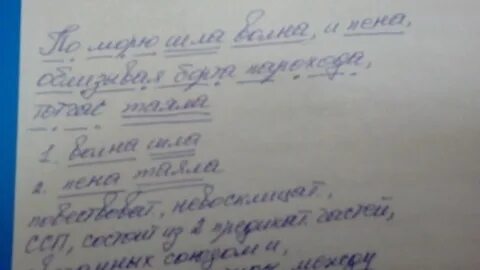 По морю шла волна, и пена,
облизывая борта парохода,
тотчас таяла
1. волна шла
2. пена таяла
повествоват., невосклицат.,
ССП, состоит из 2 предикат. частей,
союзом и,
между